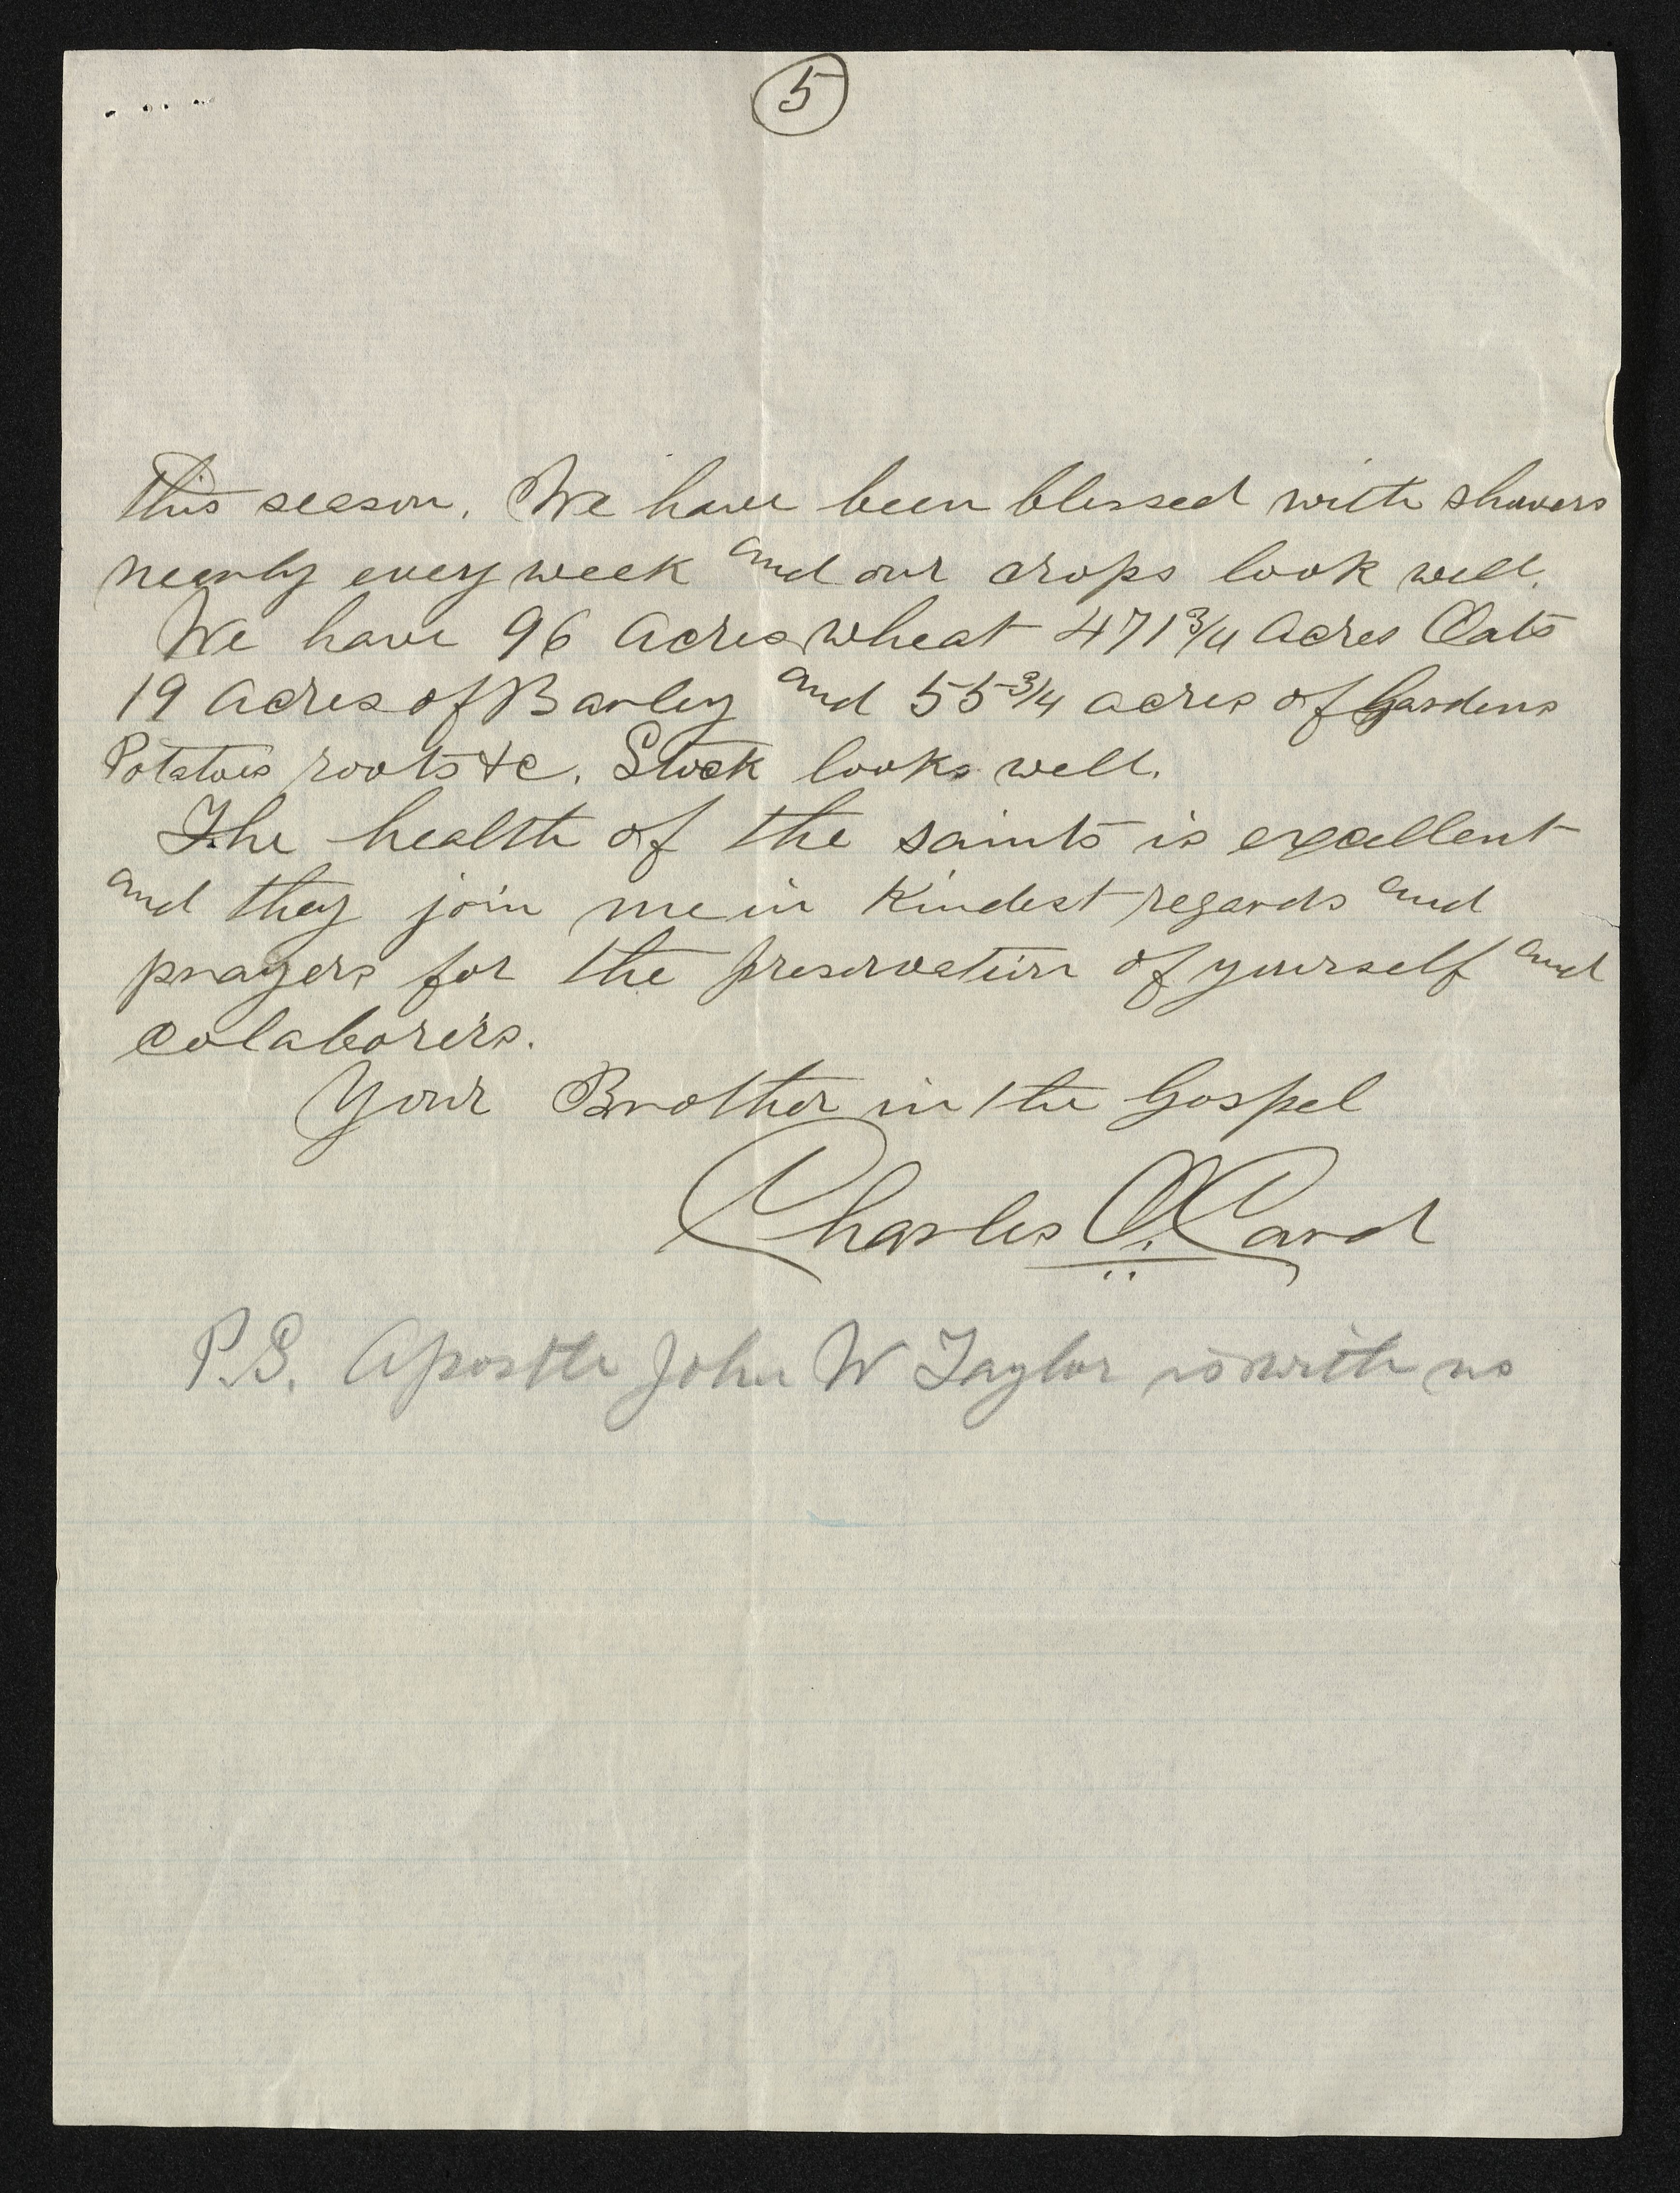 5
this season. We have been blessed with showers
nearly every week and our crops look well.
We have 96 Acres wheat 471 3/4 Acres Oats
19 Acres of Barley and 55 3/4 acres of Gardens
Potatoes roots &c. Stock looks well.
The health of the saints is excellent
and they join me in Kindest regards and
prayers for the preservation of yourself and
colaborers.
Your Brother in the Gospel
Charles O. Card
P.S. Apostle John W Taylor is with us